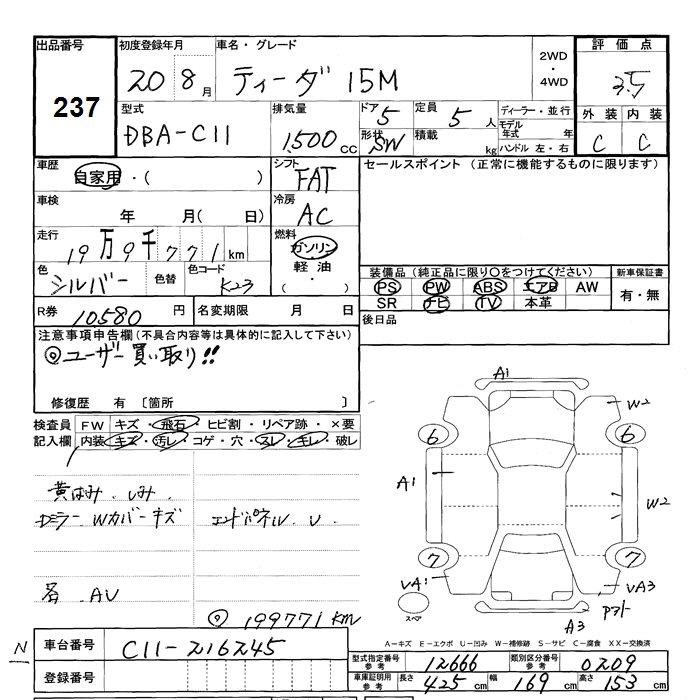 出品番号 初度登録年月 車名・グレード 2WD・4WD 評価点
237 20 8月 ティーダ 15M 3.5
型式 排気量 ドア 5 定員 5人 ディーラー・並行 外装 内装
DBA-C11 1,500cc 形状 SW 積載 kg モデル年式 年 ハンドル 左・右 C C
車歴 自家用・( ) シフト FAT セールスポイント (正常に機能するものに限ります)
車検 年 月( 日) 冷房 AC
走行 19万9千771km 燃料 ガソリン 軽油 ( ・ )
色 シルバー 色替 色コード K23
装備品 (純正品に限り○をつけてください) 新車保証書
PS PW ABS エアB AW 有・無
SR ナビ TV 本革
R券 10,580円 名変期限 月 日 後日品
注意事項申告欄 (不具合内容等は具体的に記入して下さい)
◎ユーザー買い取り!!
修復歴 有 〔箇所 〕
検査員 FW キズ・飛石 ヒビ割・リペア跡・×要
記入欄 内装 キズ・汚レ・コゲ・穴・スレ・モレ・破レ
黄ばみ.しみ.
Dミラー Wカバーキズ エンドパネルU.
名.AV
◎ 199771km
A1
W2
6 6
A1 W2
7 7
VA1 VA3
スペア
A3
A-キズ E-エクボ U-凹み W-補修跡 S-サビ C-腐食 XX-交換済
N 車台番号 C11-216245
登録番号
型式指定番号 参考 12666 類別区分番号 参考 0209
車庫証明用 参考 長さ 425cm 幅 169cm 高さ 153cm